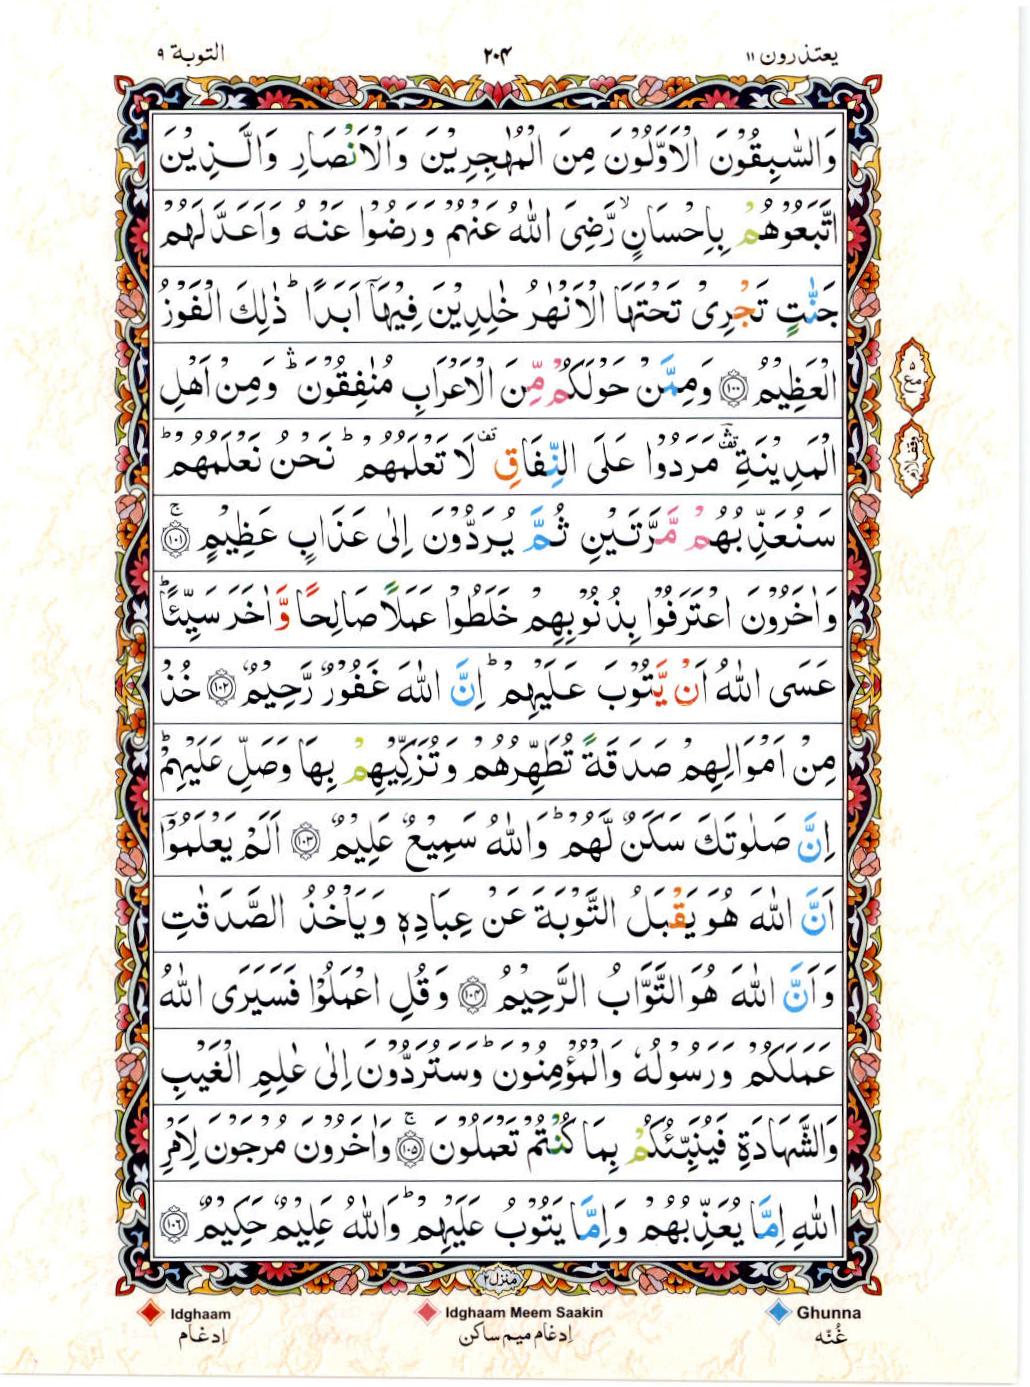 يعتذرون ١١
٢٠٤
التوبة ٩
وَالسّٰبِقُوْنَ الْاَوَّلُوْنَ مِنَ الْمُهٰجِرِيْنَ وَالْاَنْصَارِ وَالَّذِيْنَ
اتَّبَعُوْهُمْ بِاِحْسَانٍ ۙ رَّضِيَ اللّٰهُ عَنْهُمْ وَرَضُوْا عَنْهُ وَاَعَدَّ لَهُمْ
جَنّٰتٍ تَجْرِيْ تَحْتَهَا الْاَنْهٰرُ خٰلِدِيْنَ فِيْهَاۤ اَبَدًا ؕ ذٰلِكَ الْفَوْزُ
الْعَظِيْمُ ﴿١٠٠﴾ وَمِمَّنْ حَوْلَكُمْ مِّنَ الْاَعْرَابِ مُنٰفِقُوْنَ ۛؕ وَمِنْ اَهْلِ
الْمَدِيْنَةِ ۛؔ مَرَدُوْا عَلَى النِّفَاقِ ۟ لَا تَعْلَمُهُمْ ؕ نَحْنُ نَعْلَمُهُمْ ؕ
سَنُعَذِّبُهُمْ مَّرَّتَيْنِ ثُمَّ يُرَدُّوْنَ اِلٰى عَذَابٍ عَظِيْمٍ ۚ ﴿١٠١﴾
وَاٰخَرُوْنَ اعْتَرَفُوْا بِذُنُوْبِهِمْ خَلَطُوْا عَمَلًا صَالِحًا وَّاٰخَرَ سَيِّئًا ؕ
عَسَى اللّٰهُ اَنْ يَّتُوْبَ عَلَيْهِمْ ؕ اِنَّ اللّٰهَ غَفُوْرٌ رَّحِيْمٌ ﴿١٠٢﴾ خُذْ
مِنْ اَمْوَالِهِمْ صَدَقَةً تُطَهِّرُهُمْ وَتُزَكِّيْهِمْ بِهَا وَصَلِّ عَلَيْهِمْ ؕ
اِنَّ صَلٰوتَكَ سَكَنٌ لَّهُمْ ؕ وَاللّٰهُ سَمِيْعٌ عَلِيْمٌ ﴿١٠٣﴾ اَلَمْ يَعْلَمُوْۤا
اَنَّ اللّٰهَ هُوَ يَقْبَلُ التَّوْبَةَ عَنْ عِبَادِهٖ وَيَاْخُذُ الصَّدَقٰتِ
وَاَنَّ اللّٰهَ هُوَ التَّوَّابُ الرَّحِيْمُ ﴿١٠٤﴾ وَقُلِ اعْمَلُوْا فَسَيَرَى اللّٰهُ
عَمَلَكُمْ وَرَسُوْلُهٗ وَالْمُؤْمِنُوْنَ ؕ وَسَتُرَدُّوْنَ اِلٰى عٰلِمِ الْغَيْبِ
وَالشَّهَادَةِ فَيُنَبِّئُكُمْ بِمَا كُنْتُمْ تَعْمَلُوْنَ ۚ ﴿١٠٥﴾ وَاٰخَرُوْنَ مُرْجَوْنَ لِاَمْرِ
اللّٰهِ اِمَّا يُعَذِّبُهُمْ وَاِمَّا يَتُوْبُ عَلَيْهِمْ ؕ وَاللّٰهُ عَلِيْمٌ حَكِيْمٌ ﴿١٠٦﴾
وقف لازم
منزل ٢
Ghunna
غُنّه
Idghaam Meem Saakin
اِدغام میم ساکن
Idghaam
اِدغام